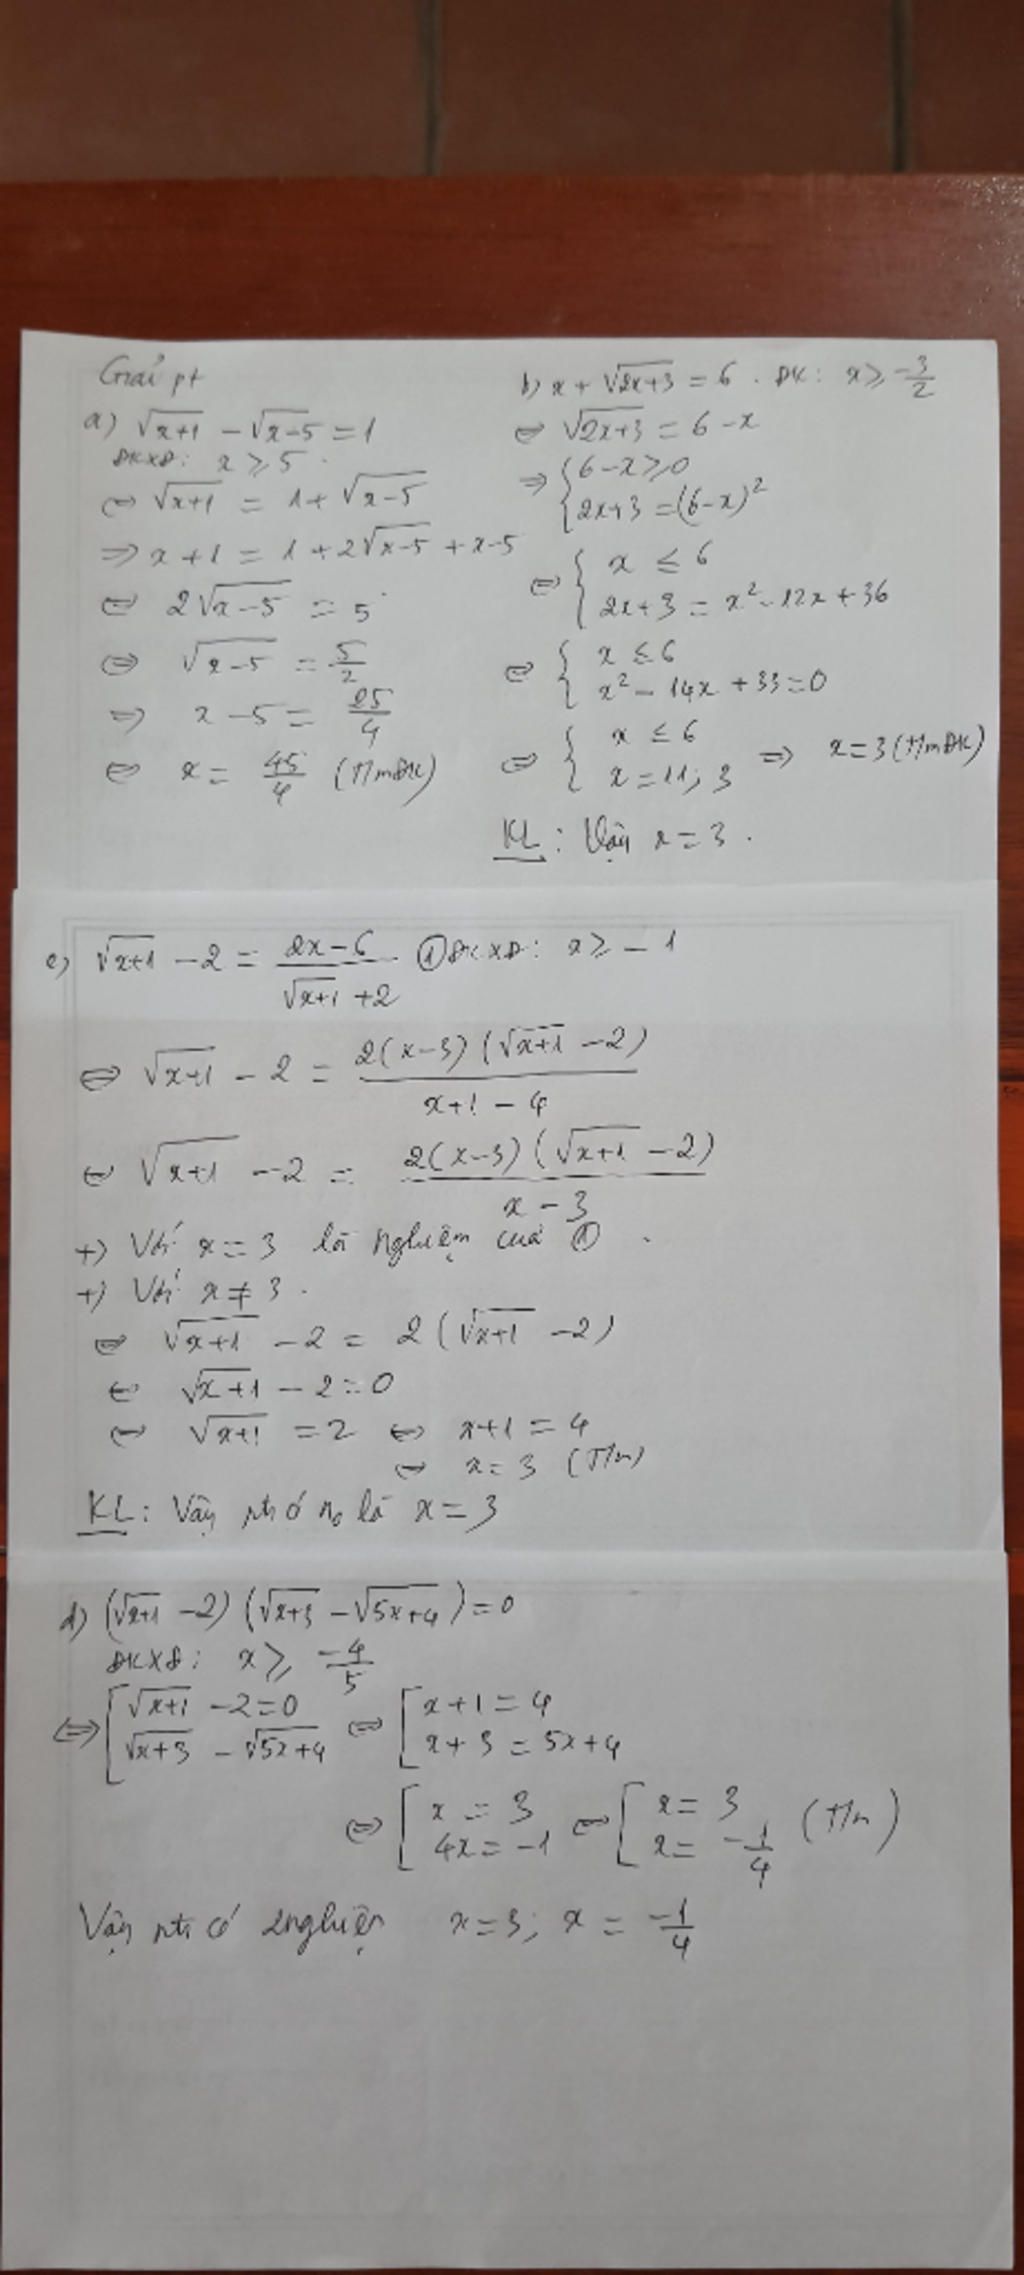 Giải pt
a) √(x+1) - √(x-5) = 1
ĐKXĐ: x ≥ 5.
⇔ √(x+1) = 1 + √(x-5)
⇒ x + 1 = 1 + 2√(x-5) + x - 5
⇔ 2√(x-5) = 5
⇔ √(x-5) = 5/2
⇒ x - 5 = 25/4
⇔ x = 45/4 (TMĐK)
b) x + √(2x+3) = 6. ĐK: x ≥ -3/2
⇔ √(2x+3) = 6 - x
⇒ { 6 - x ≥ 0
2x+3 = (6-x)²
⇔ { x ≤ 6
2x + 3 = x² - 12x + 36
⇔ { x ≤ 6
x² - 14x + 33 = 0
⇔ { x ≤ 6
x = 11; 3 ⇒ x = 3 (TMĐK)
KL: Vậy x = 3.
c) √(x+1) - 2 = (2x-6)/(√(x+1) + 2) ① ĐKXĐ: x ≥ -1
⇔ √(x+1) - 2 = 2(x-3)(√(x+1) - 2)/(x+1-4)
⇔ √(x+1) - 2 = 2(x-3)(√(x+1) - 2)/(x-3)
+) Với x = 3 là nghiệm của ①.
+) Với x ≠ 3.
⇔ √(x+1) - 2 = 2(√(x+1) - 2)
⇔ √(x+1) - 2 = 0
⇔ √(x+1) = 2 ⇔ x+1 = 4
⇔ x = 3 (T/m)
KL: Vậy là x = 3
d) (√(x+1) - 2)(√(x+3) - √(5x+4)) = 0
ĐKXĐ: x ≥ -4/5
⇔ [ √(x+1) - 2 = 0 ⇔ [ x + 1 = 4
√(x+3) - √(5x+4) x + 3 = 5x + 4
⇔ [ x = 3 ⇔ [ x = 3 (T/m)
4x = -1 x = -1/4
Vậy pt có 2 nghiệm x = 3; x = -1/4